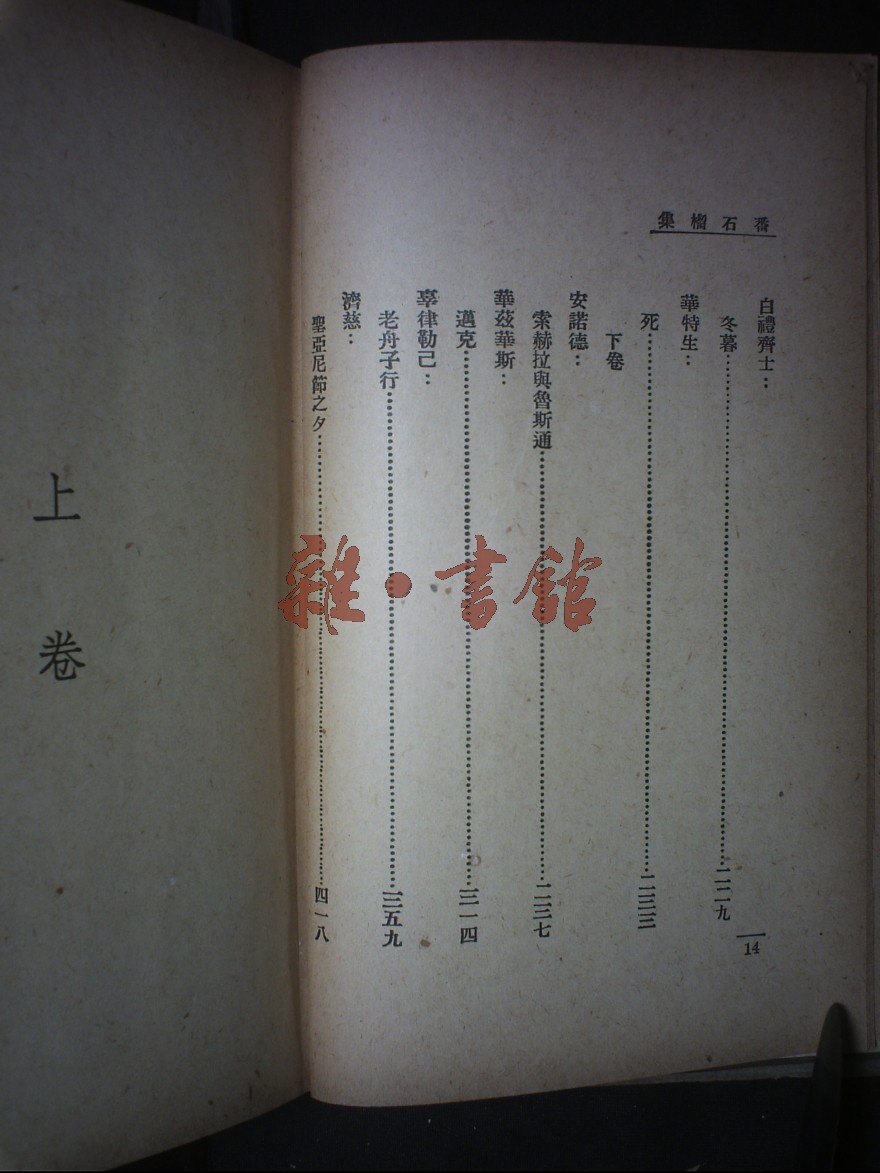 番石榴集
白禮齊士：
冬暮……二二九
華特生：
死……二三三
下卷
安諾德：
索赫拉與魯斯通……二三七
華茲華斯：
邁克……三一四
辜律勒己：
老舟子行……三五九
濟慈：
聖亞尼節之夕……四一八
14
上卷
雜·書館